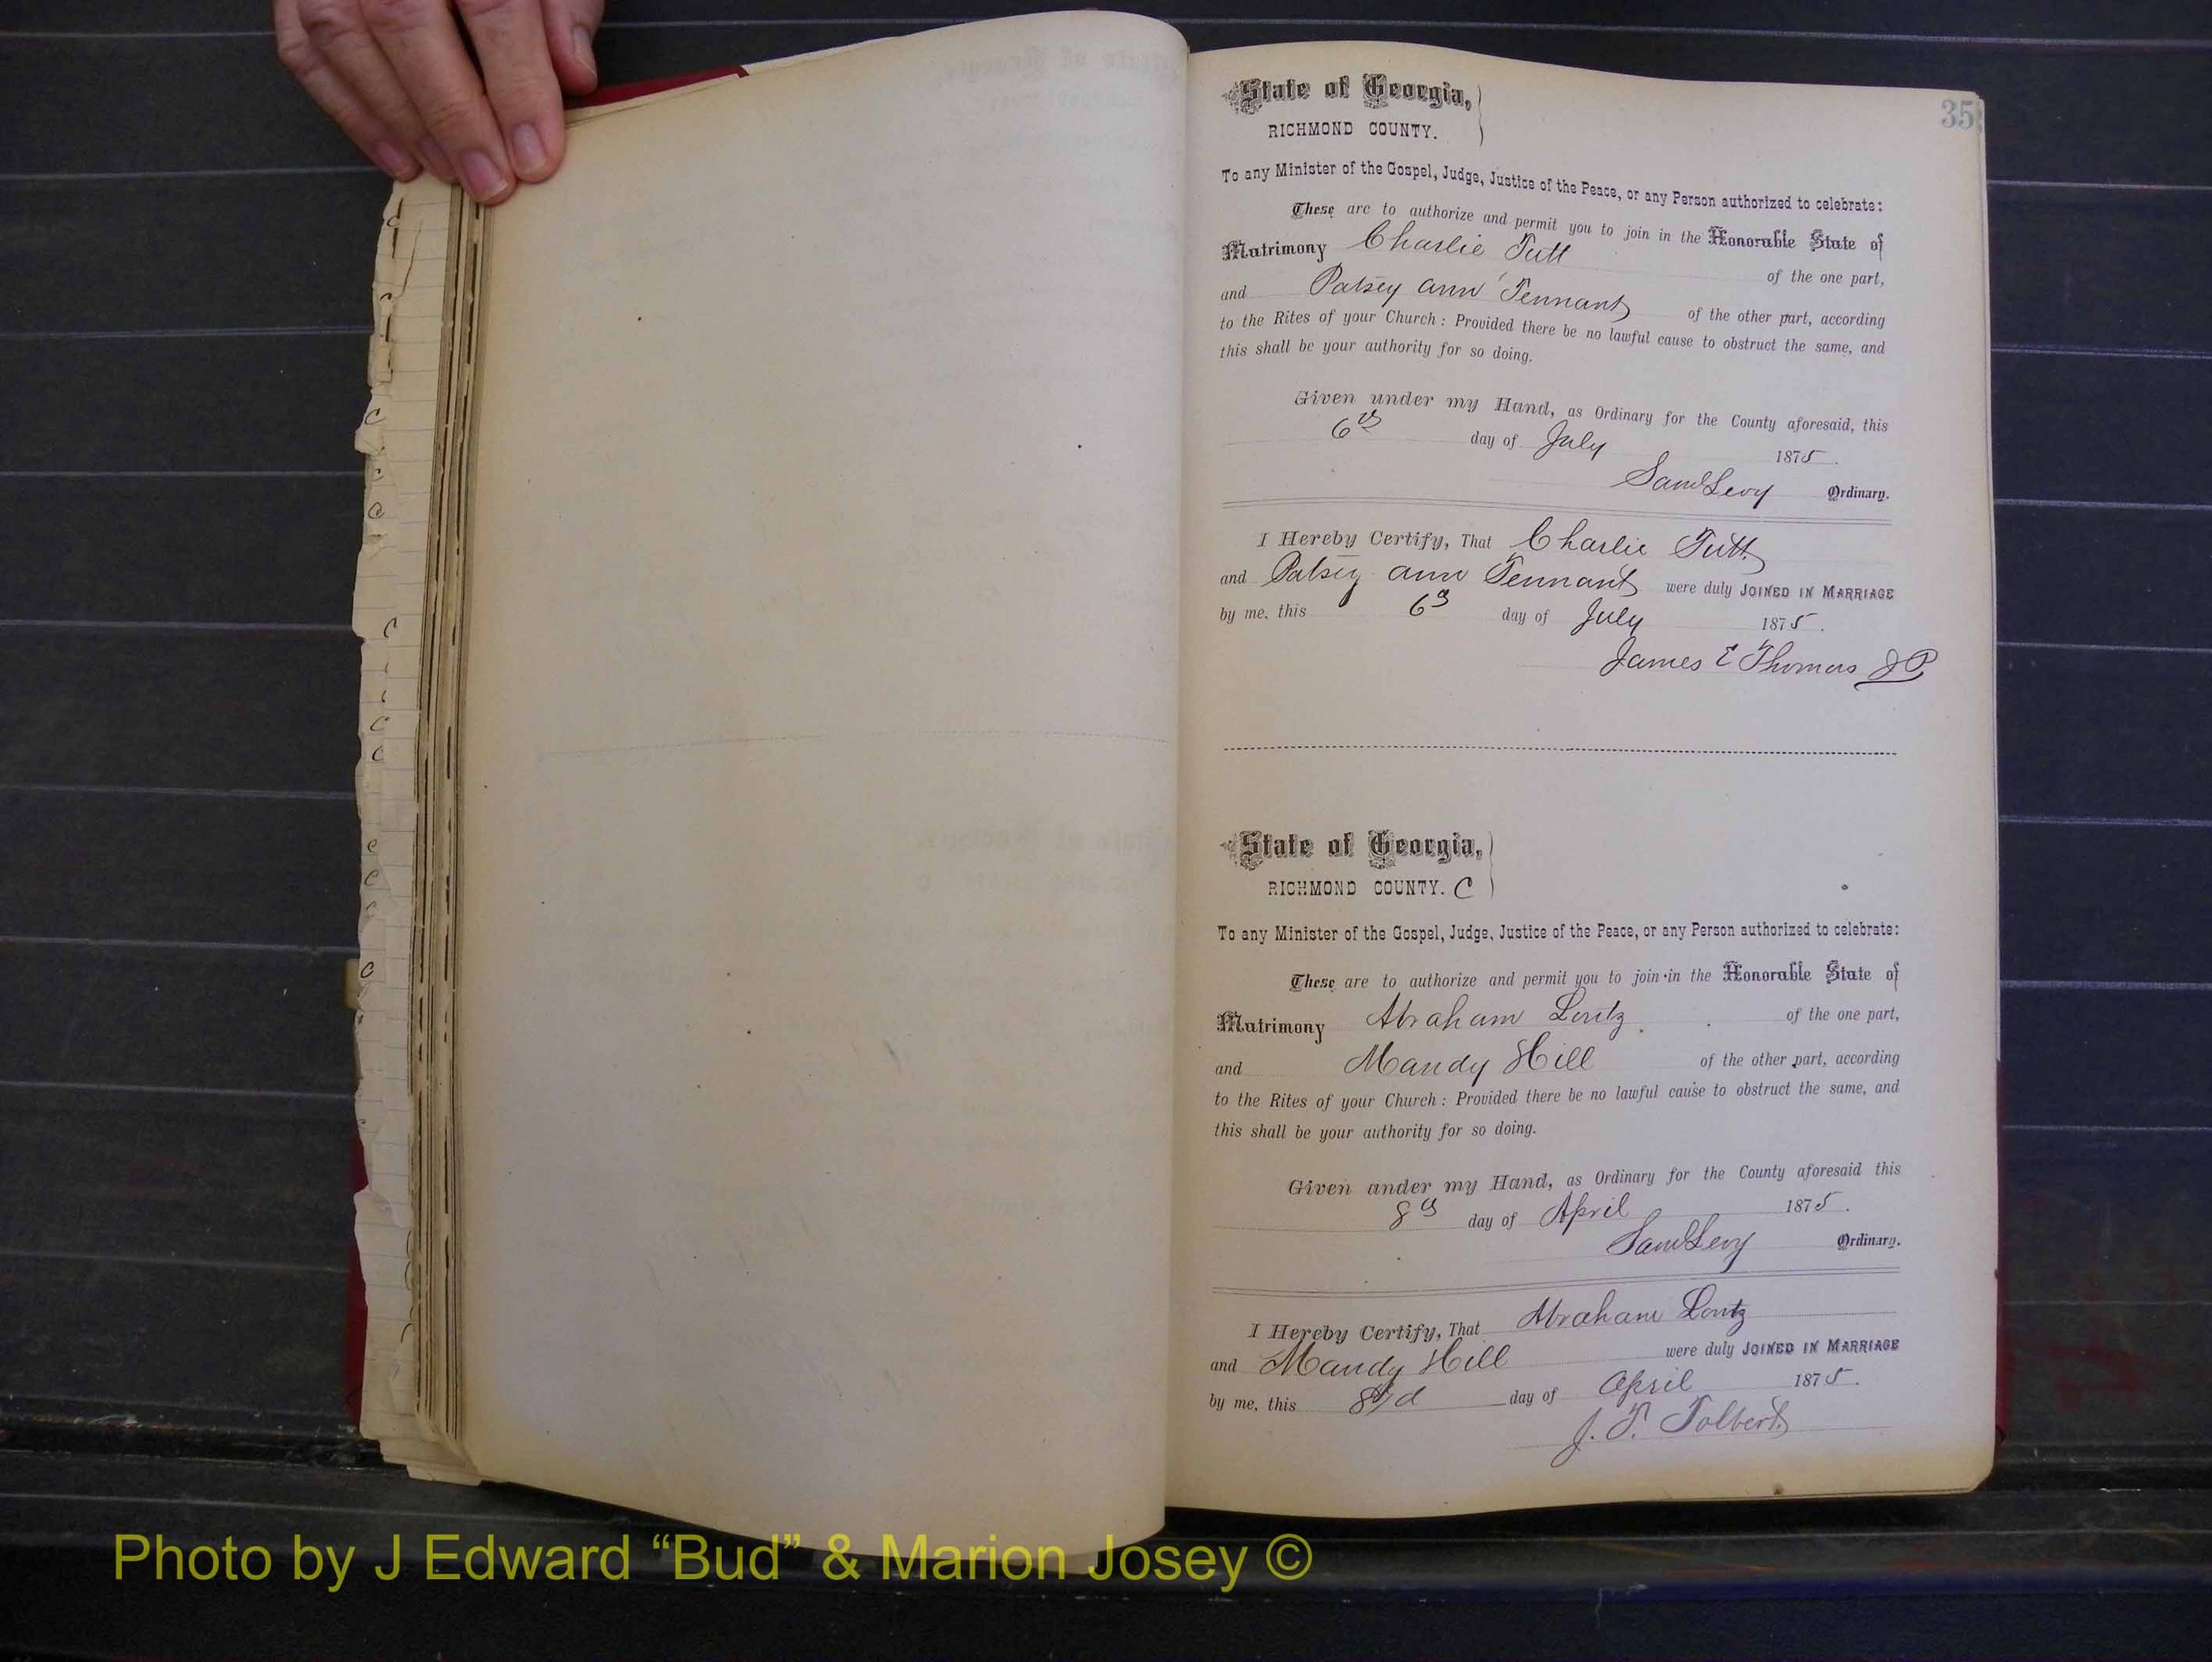 35
State of Georgia,
RICHMOND COUNTY.
To any Minister of the Gospel, Judge, Justice of the Peace, or any Person authorized to celebrate:
These are to authorize and permit you to join in the Honorable State of
Matrimony Charlie Tutt of the one part,
and Patsey ann Tennant of the other part, according
to the Rites of your Church: Provided there be no lawful cause to obstruct the same, and
this shall be your authority for so doing.
Given under my Hand, as Ordinary for the County aforesaid, this
6th day of July 1875.
Saml Levy Ordinary.
I Hereby Certify, That Charlie Tutt
and Patsey ann Tennant were duly JOINED IN MARRIAGE
by me, this 6th day of July 1875.
James E Thomas JP
State of Georgia,
RICHMOND COUNTY. C
To any Minister of the Gospel, Judge, Justice of the Peace, or any Person authorized to celebrate:
These are to authorize and permit you to join in the Honorable State of
Matrimony Abraham Lontz of the one part,
and Mandy Hill of the other part, according
to the Rites of your Church: Provided there be no lawful cause to obstruct the same, and
this shall be your authority for so doing.
Given under my Hand, as Ordinary for the County aforesaid this
8th day of April 1875.
Saml Levy Ordinary.
I Hereby Certify, That Abraham Lontz
and Mandy Hill were duly JOINED IN MARRIAGE
by me, this day of April 1875.
J. T. Tolbert
Photo by J Edward “Bud” & Marion Josey ©